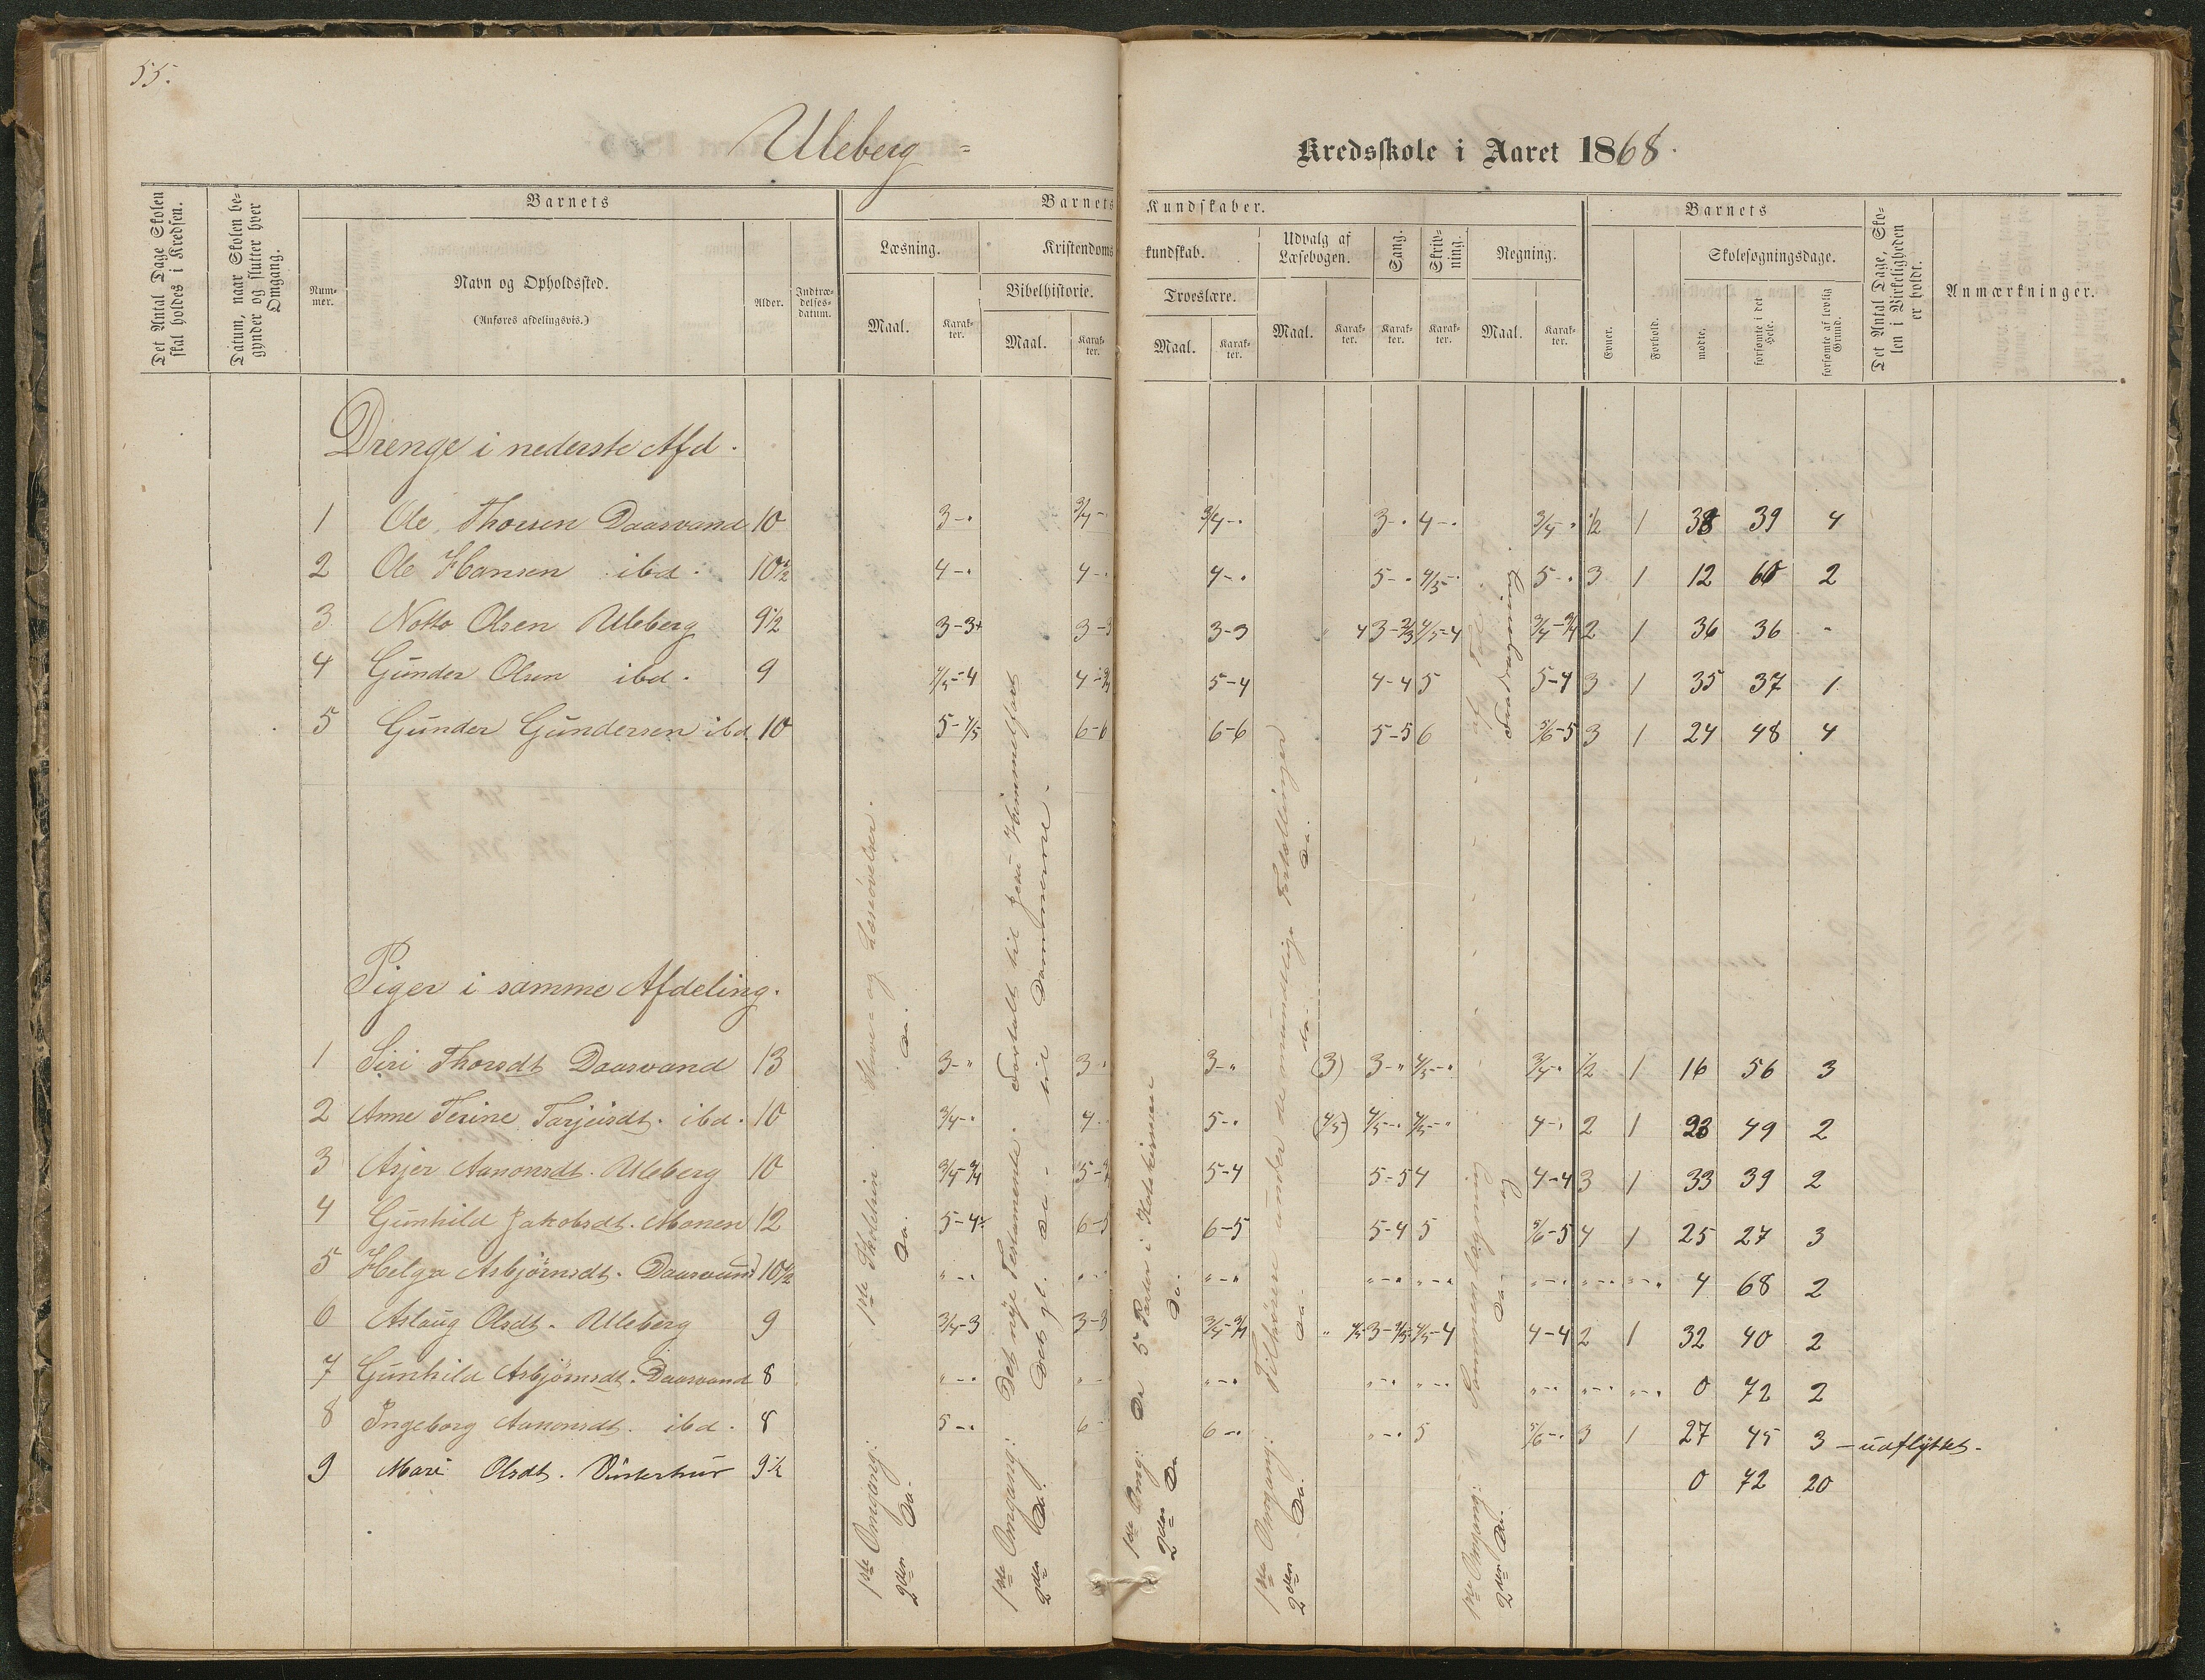 55.
Uleberg - Kredsskole i Aaret 1868.
Det Antal Dage Skolen skal holdes i Kredsen.
Datum, naar Skolen begynder og slutter hver Omgang.
Barnets
Nummer.
Navn og Opholdssted.
(Anføres afdelingsvis.)
Alder.
Indtrædelsesdatum.
Barnets Kundskaber.
Læsning.
Maal.
Karakter.
Kristendomskundskab.
Bibelhistorie.
Maal.
Karakter.
Troeslære.
Maal.
Karakter.
Udvalg af Læsebogen.
Maal.
Karakter.
Sang.
Karakter.
Skrivning.
Karakter.
Regning.
Maal.
Karakter.
Barnets
Evner.
Forhold.
Skolesøgningsdage.
mødte.
forsømte i det Hele.
forsømte af lovlig Grund.
Det Antal Dage, Skolen i Virkeligheden er holdt.
Anmærkninger.
Drenge i nederste Afd.
1 Ole Thorsen Daasvand 10 3-" 3/4- 3/4-" 3-" 4-" 3/4-" 1/2 1 38 39 4
2 Ole Hansen ibd. 10 1/2 4-" 4-" 4-" 5-" 4/5-" 5-" 3 1 12 60 2
3 Notto Olsen Uleberg 9 1/2 3-3+ 3-3 3-3 " 4 3-2/3 4/5-4 3/4-3/4 2 1 36 36 -
4 Gunder Olsen ibd. 9 4/5-4 4-3/4 5-4 4-4 5 5-4 3 1 35 37 1
5 Gunder Gundersen ibd. 10 5-4/5 6-6 6-6 5-5 6 5/6-5 3 1 24 48 4
Piger i samme Afdeling.
1 Siri Thorsdt Daasvand 13 3-" 3-" 3-" (3) 3-" 4/5-" 3/4-" 1/2 1 16 56 3
2 Anne Terine Tarjeisdt. ibd. 10 3/4-" 4-" 5-" (4/5) 4/5-" 4/5-" 4-" 2 1 23 49 2
3 Asjer Aanonsdt. Uleberg 10 3/4-3/4 5-3/4 5-4 5-5 4 4-4 3 1 33 39 2
4 Gunhild Jakobsdt. Monen 12 5-4 6-5 6-5 5-4 5 5/6-5 4 1 25 27 3
5 Helga Asbjörnsdt. Daasvand 10 1/2 "-" "-" "-" "-" "-" "-" "-" "-" 4 68 2
6 Aslaug Olsdt. Uleberg 9 3/4-3 3-3 3/4-3/4 " 4/5 3-4/5 4/5-4 4-4 2 1 32 40 2
7 Gunhild Asbjörnsdt. Daasvand 8 "-" "-" "-" "-" "-" "-" "-" "-" 0 72 2
8 Ingeborg Aanonsdt. ibd. 8 5-" 6- 6-" "-" 5 5/6-" 3 1 27 45 3 - udflyttet -
9 Mari Olsdt. 9 1/2 0 72 20
1ste Omgang: 1ste Skoletrin. Stave- og Læseövelser.
2den Do. Do. Do.
1ste Omgang: Det nÿe Testamente. Fortalt til Jesu Himmelfart
2den Do. Det gl. do - til Dommerne.
1ste Omg: De 5 Parter i Katekismen
2den Do Do.
1ste Omgang: Tilhörere under de mundtlige Fortællinger
2den Do. Do. do. Do.
1ste Omgang:
2den Do. Do.